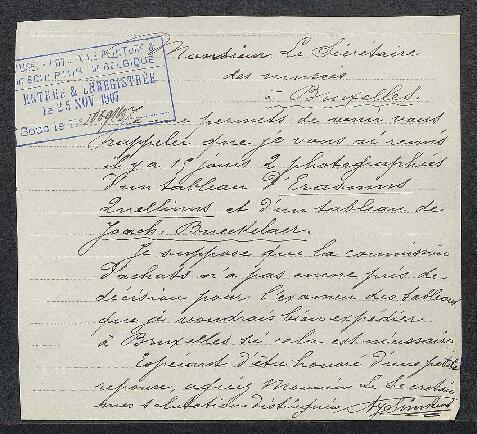 Monsieur Le Sécrétaire
des musées
à Bruxelles.
MUSÉE ROYAL DE PEINTURE &
DE SCULPTURE DE BELGIQUE
ENTRÉE & ENREGISTRÉE
le 25 NOV. 1907
Sous le n°
Je me permets de venir vous
rappeler que je vous ai remis
il y a 15 jours 2 photographies
d'un tableau d'Erasmus
Quellinus et d'un tableau de
Joach. Bueckelaer.
Je suppose que la commission
d'achats n'a pas encore pris de
décision pour l'examen des tableaux
que je voudrais bien expédier
à Bruxelles si cela est nécessaire
Espérant d'être honoré d'une petite
reponse, agréez Monsieur Le Secrétaire
mes salutations distinguées